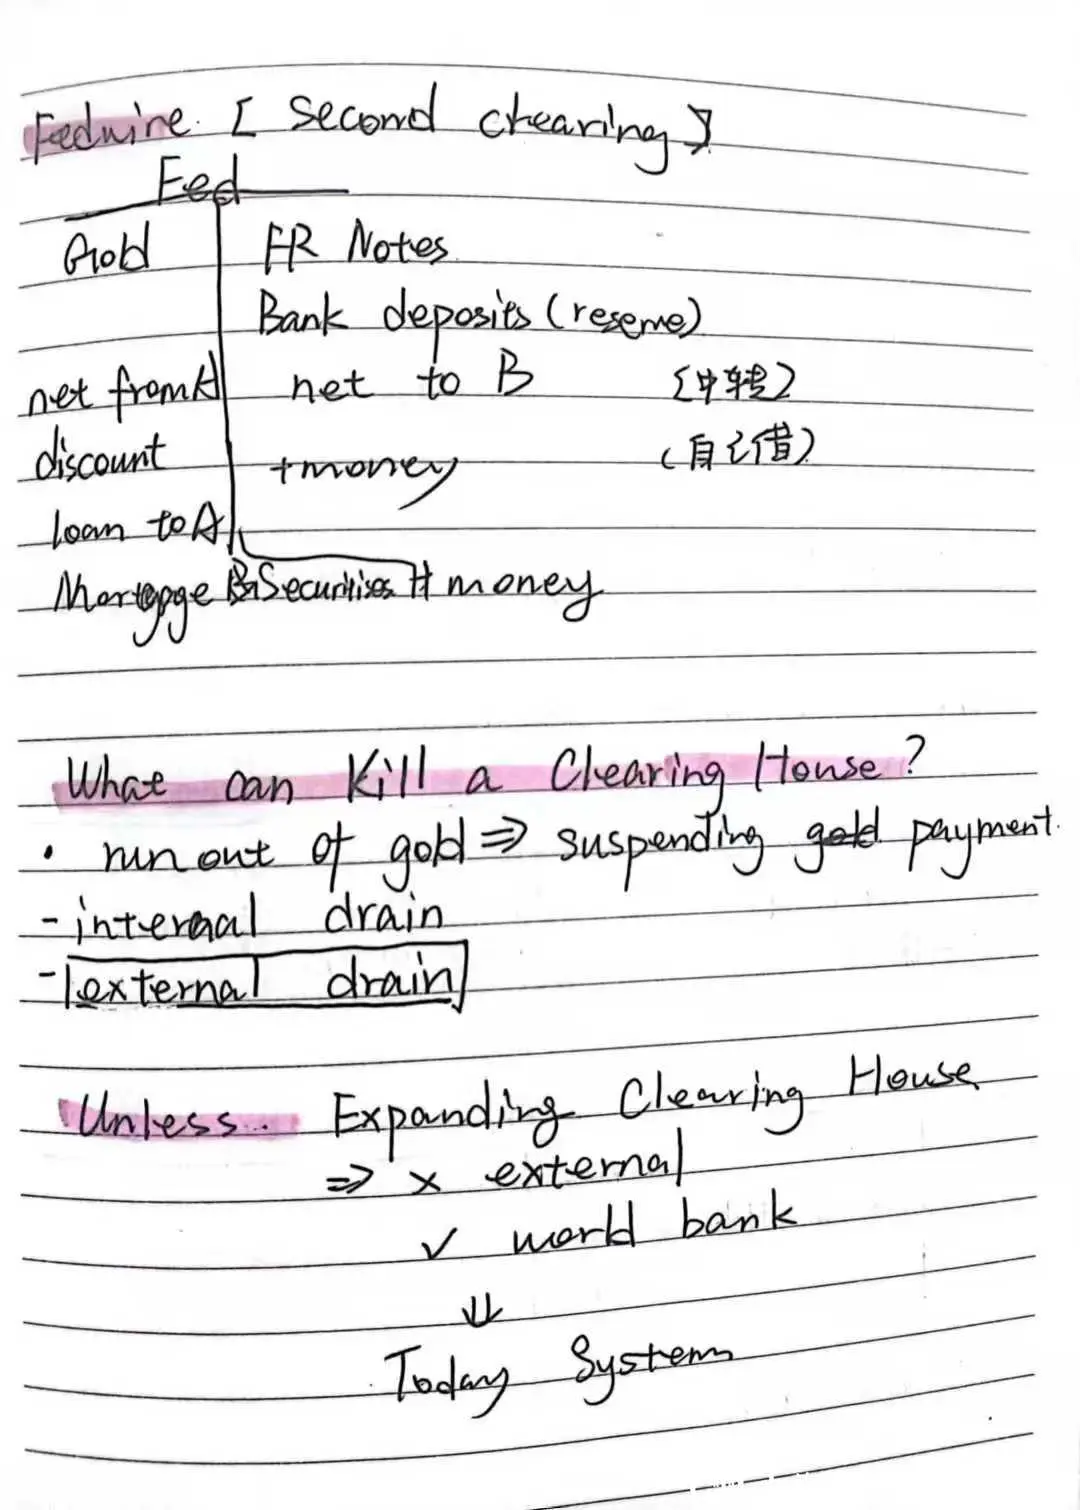 Fedwire. [ second clearing ]
Fed
Gold FR Notes
Bank deposits (reserve)
net from A net to B [中转]
discount +money (自己借)
loan to A
Mortgage B Securities + money
What can Kill a Clearing House?
• run out of gold ⇒ suspending gold payment.
- internal drain
- external drain
Unless. Expanding Clearing House
⇒ × external
✓ world bank
⇓
Today System